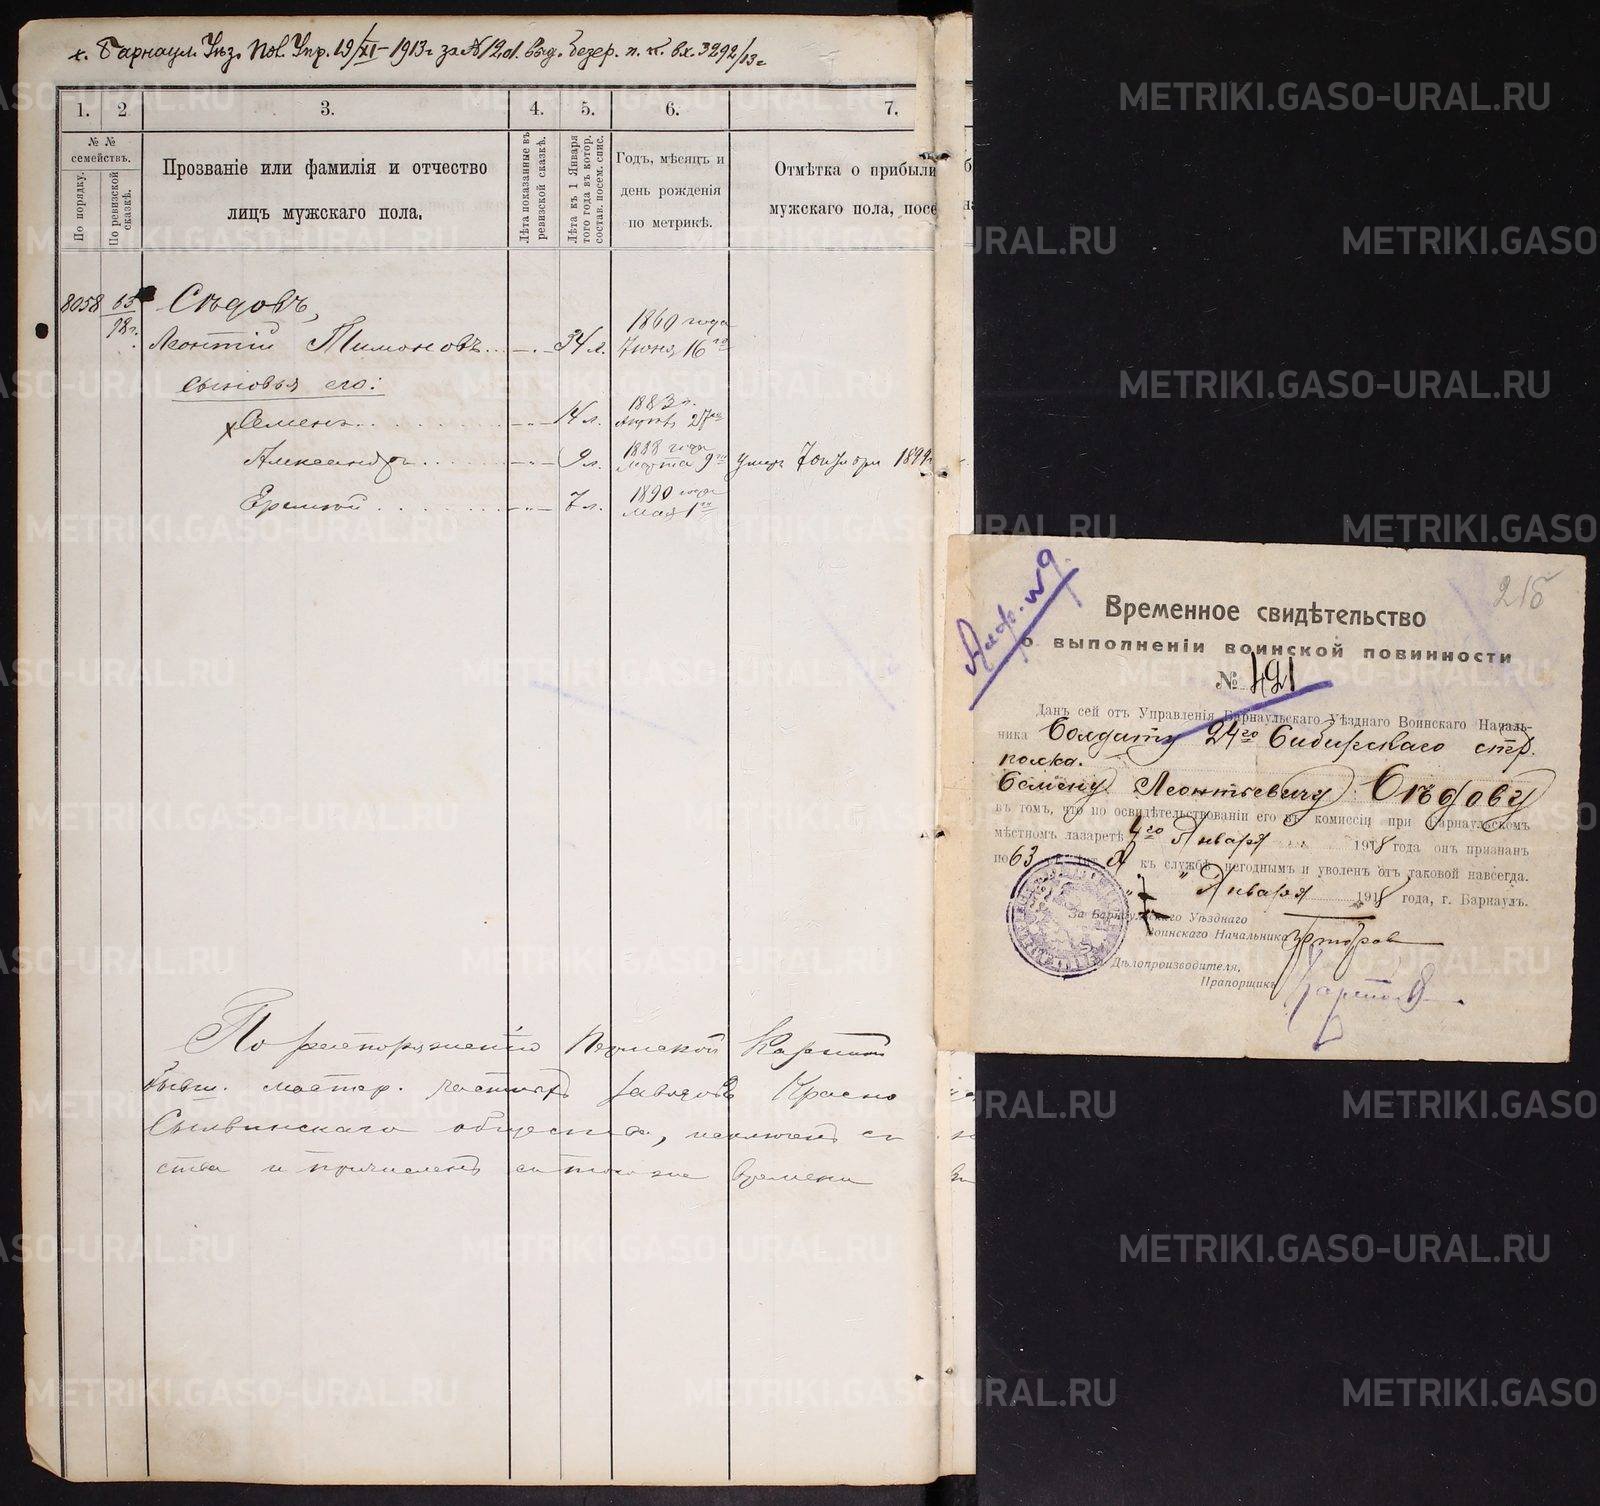 Барнаул. Уѣз. Пов. Упр. 19/XI-1913 г. за № 12,01. выд. безер. п. к. вх. 3292/13 г.
1. 2 3. 4. 5. 6. 7.
№ №
семействъ.
По порядку.
По ревизской сказкѣ.
Прозваніе или фамилія и отчество
лицъ мужскаго пола.
Лѣта показанные въ ревизской сказкѣ.
Лѣта къ 1 Января того года въ котор. состав. посем. спис.
Годъ, мѣсяцъ и
день рожденія
по метрикѣ.
Отмѣтка о прибыли
мужскаго пола, посе
8058
Сѣдовъ,
1860 года
Леонтій Тимоновъ 34 л. Іюня 16го
сыновья его:
1883 г.
Семенъ 14 л. 27
1888 года
Александръ 9 л. Марта 9го умеръ 7 Октября 1899
1890 года
Еремѣй 7 л. Мая 1го
По распоряженію Пермской Казенной
мастер. частныхъ заводовъ Красно
Сылвинскаго общества, исключенъ съ
ства и причисленъ съ того же времени
Алф. № 9.
215
Временное свидѣтельство
о выполненіи воинской повинности
№ 491
Данъ сей отъ Управленія Барнаульскаго Уѣзднаго Воинскаго Началь-
ника Солдату 24го Сибирскаго стр.
полка.
Семену Леонтьевичу Сѣдову
въ томъ, что по освидѣтельствованіи его въ комиссіи при Барнаульскомъ
мѣстномъ лазаретѣ 4го Января 1918 года онъ признанъ
по 63 ст. лит. А къ службѣ негоднымъ и уволенъ отъ таковой навсегда.
" " Января 1918 года, г. Барнаулъ.
За Барнаульскаго Уѣзднаго
Воинскаго Начальника
Дѣлопроизводителя,
Прапорщикъ
METRIKI.GASO-URAL.RU